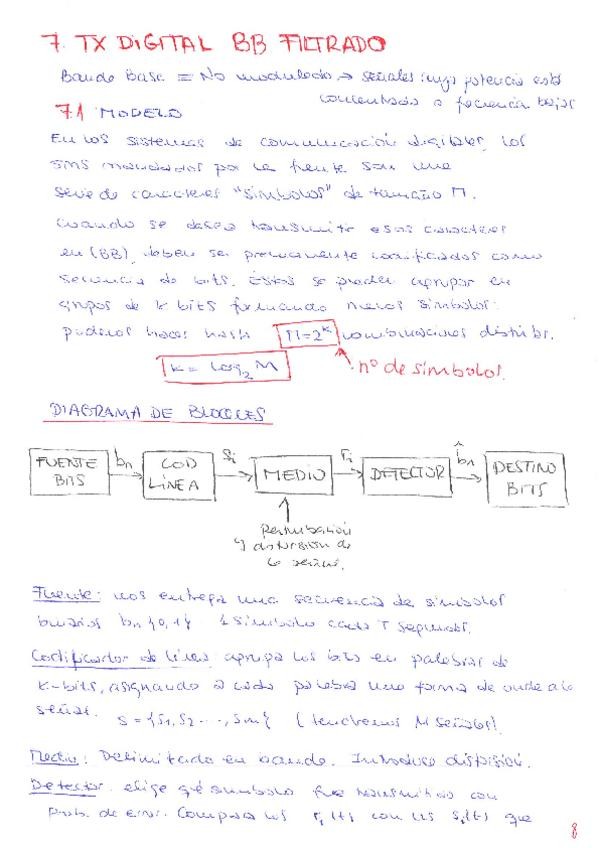 7. TX DIGITAL BB FILTRADO
Banda Base = No modulado → señales cuya potencia está
concentrada a frecuencia bajas
7.1 MODELO
En los sistemas de comunicación digitales, los
SMS mandados por la fuente son una
serie de caracteres "símbolos" de tamaño M.
Cuando se desea transmitir esos caracteres
en (BB), deben ser previamente codificados como
secuencia de bits. Estos se pueden agrupar en
grupos de k bits formando nuevos símbolos:
podemos hacer hasta M=2^k combinaciones distintas.
k = log2 M
nº de símbolos.
DIAGRAMA DE BLOQUES
FUENTE BITS
bn
COD LÍNEA
Si
MEDIO
ri
DETECTOR
b̂n
DESTINO BITS
Perturbación
y distorsión de
la señal.
Fuente: nos entrega una secuencia de símbolos
binarios bn {0,1} 1 símbolo cada T segundos.
Codificador de línea: agrupa los bits en palabras de
k-bits, asignando a cada palabra una forma de onda a la
señal. S = {S1, S2 ..., Sm} (tendremos M señales).
Medio: Delimitado en banda. Introduce distorsión.
Detector: elige qué símbolo fue transmitido con
prob. de error. Compara los ri(t) con los si(t) que
8